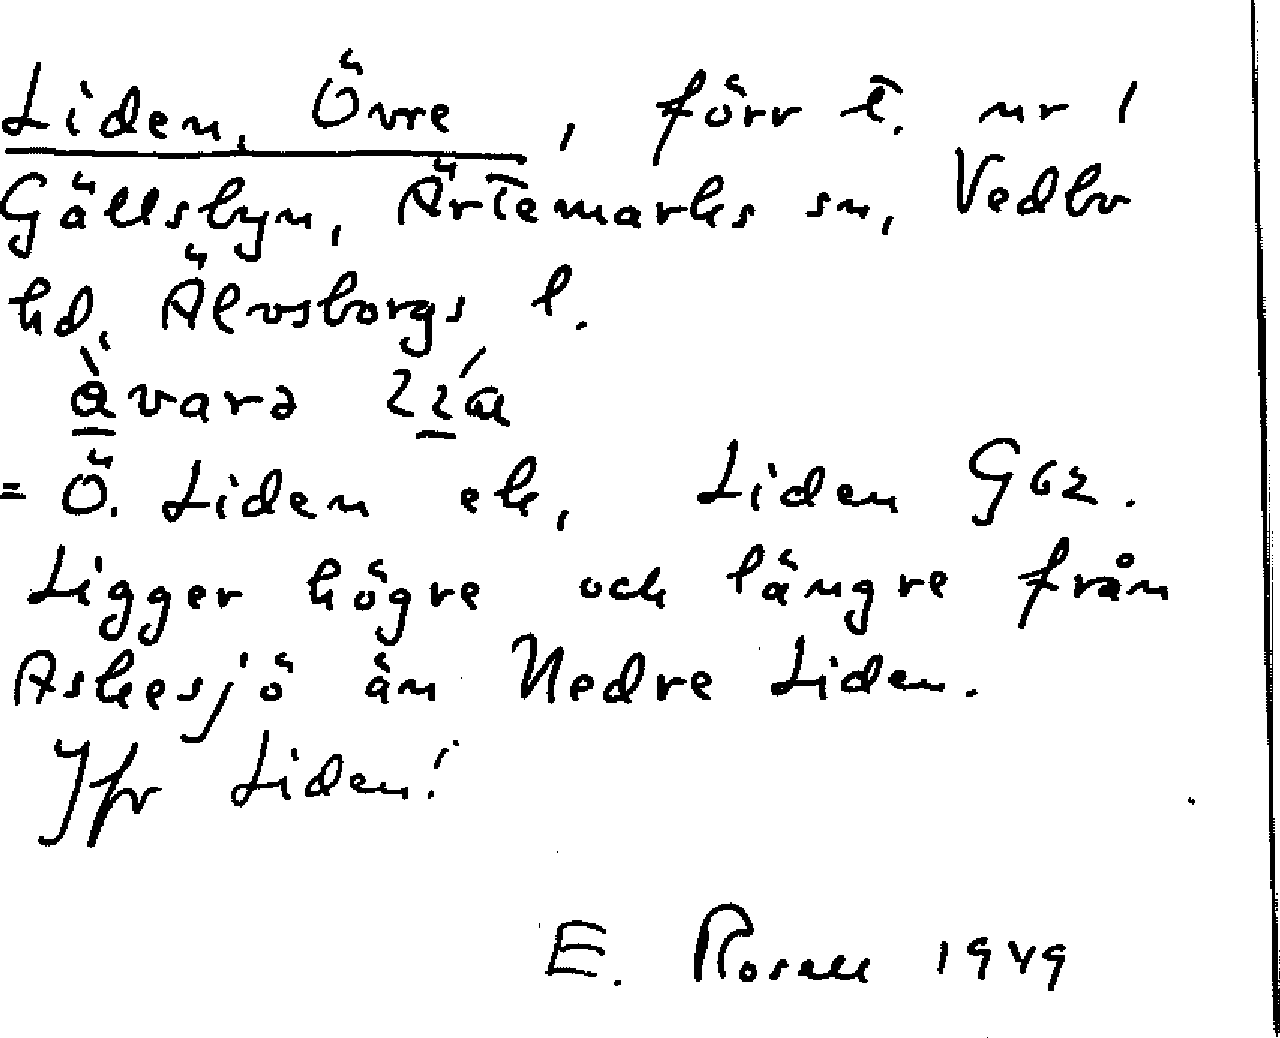 Liden, Övre, förr t. nr 1
Gällsbyn, Ärtemarks sn, Vedbo
hd, Älvsborgs l.
= Ö. Liden ek, Liden G62.
Ligger högre och längre från
Askesjö än Nedre Liden.
Jfr Liden!
E. Rosell 1949